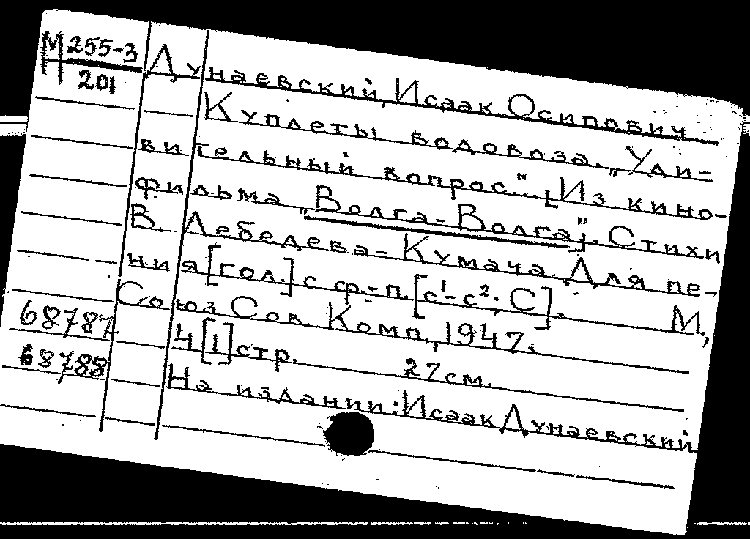 М 255-3
201
Дунаевский, Исаак Осипович
Куплеты водовоза. „Уди=
вительный вопрос." [Из кино-
фильма „Волга-Волга"]. Стихи
В. Лебедева=Кумача. Для пе-
ния [гол.] с ф.-п. [c¹-c²; C]. М.,
Союз Сов. Комп., 1947.
4 [1] стр. 27см.
На издании: Исаак Дунаевский
68787
68788